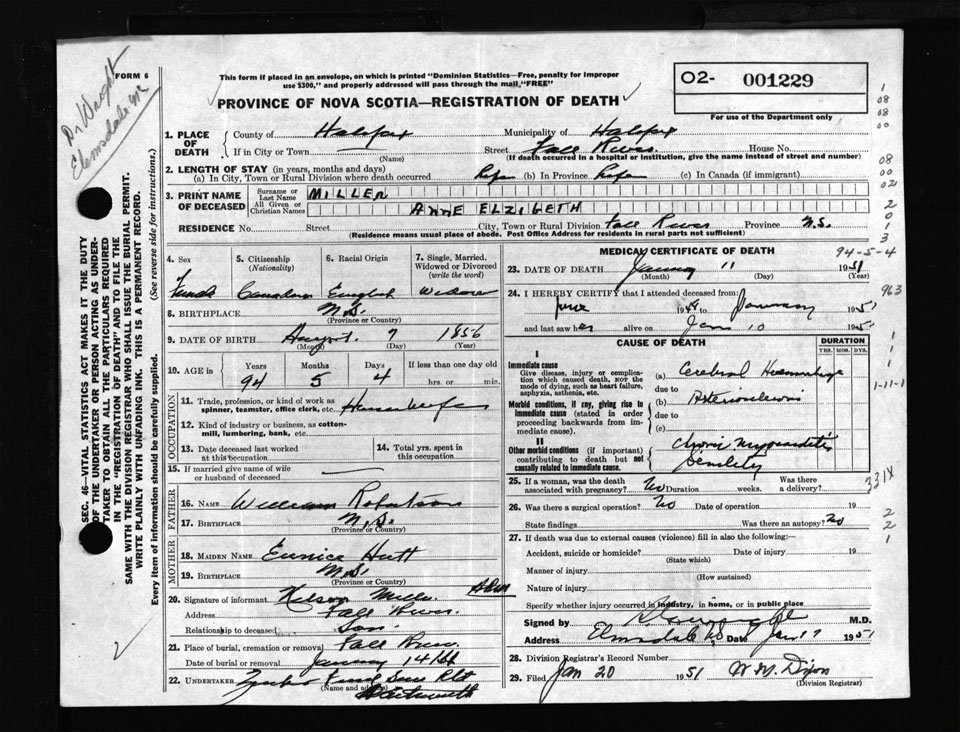 Dr Wright
Elmsdale
FORM 6
This form if placed in an envelope, on which is printed "Dominion Statistics—Free, penalty for improper
use $300," and properly addressed will pass through the mail "FREE"
PROVINCE OF NOVA SCOTIA—REGISTRATION OF DEATH
O2- 001229
For use of the Department only
1. PLACE OF DEATH
County of Halifax Municipality of Halifax
If in City or Town (Name) Street Fall River House No.
(If death occurred in a hospital or institution, give the name instead of street and number)
2. LENGTH OF STAY (in years, months and days)
(a) In City, Town or Rural Division where death occurred Life (b) In Province Life (c) In Canada (if immigrant)
3. PRINT NAME OF DECEASED
Surname or Last Name MILLER
All Given or Christian Names ANNE ELZIBETH
RESIDENCE No. Street City, Town or Rural Division Fall River Province N.S.
(Residence means usual place of abode. Post Office Address for residents in rural parts not sufficient)
4. Sex
Female
5. Citizenship (Nationality)
Canadian
6. Racial Origin
English
7. Single, Married, Widowed or Divorced (write the word)
Widow
8. BIRTHPLACE N.S.
(Province or Country)
9. DATE OF BIRTH August 7 1856
(Month) (Day) (Year)
10. AGE in Years Months Days If less than one day old
94 5 4 hrs. or min.
OCCUPATION
11. Trade, profession or kind of work as spinner, teamster, office clerk, etc. Housewife
12. Kind of industry or business, as cotton-mill, lumbering, bank, etc.
13. Date deceased last worked at this occupation
14. Total yrs. spent in this occupation
15. If married give name of wife or husband of deceased
FATHER
16. NAME William Robertson
17. BIRTHPLACE N.S.
(Province or Country)
MOTHER
18. MAIDEN NAME Eunice Hutt
19. BIRTHPLACE N.S.
(Province or Country)
20. Signature of informant Nelson Miller
Address Fall River
Relationship to deceased Son
21. Place of burial, cremation or removal Fall River
Date of burial or removal January 14th
22. UNDERTAKER
(Name and address) Dartmouth
MEDICAL CERTIFICATE OF DEATH
94-5-4
23. DATE OF DEATH January 11 1951
(Month) (Day) (Year)
24. I HEREBY CERTIFY that I attended deceased from:
June 19 January 1951
and last saw her alive on Jan 10 1951
CAUSE OF DEATH
DURATION
YRS. MOS. DYS.
I
Immediate cause
Give disease, injury or complication which caused death, NOT the mode of dying, such as heart failure, asphyxia, asthenia, etc.
(a) Cerebral Haemorrhage
due to
Morbid conditions, if any, giving rise to immediate cause (stated in order proceeding backwards from immediate cause).
(b)
due to
(c)
II
Other morbid conditions (if important) contributing to death but not causally related to immediate cause.
Chronic Myocarditis
Senility
25. If a woman, was the death associated with pregnancy? No Duration weeks. Was there a delivery?
331X
26. Was there a surgical operation? No Date of operation 19
State findings Was there an autopsy? No
27. If death was due to external causes (violence) fill in also the following:—
Accident, suicide or homicide? Date of injury 19
(State which)
Manner of injury
(How sustained)
Nature of injury
Specify whether injury occurred in industry, in home, or in public place
Signed by M.D.
Address Elmsdale NS Date Jan 17 1951
28. Division Registrar's Record Number
29. Filed Jan 20 1951 W M. Dixon
(Division Registrar)
SEC. 46—VITAL STATISTICS ACT MAKES IT THE DUTY
OF THE UNDERTAKER OR PERSON ACTING AS UNDER-
TAKER TO OBTAIN ALL THE PARTICULARS REQUIRED
IN THE "REGISTRATION OF DEATH" AND TO FILE THE
SAME WITH THE DIVISION REGISTRAR WHO SHALL ISSUE THE BURIAL PERMIT.
WRITE PLAINLY WITH UNFADING INK. THIS IS A PERMANENT RECORD.
Every item of information should be carefully supplied. (See reverse side for instructions.)
1
08
08
00
08
00
02
2
0
1
3
963
1-11-1
2
2
1